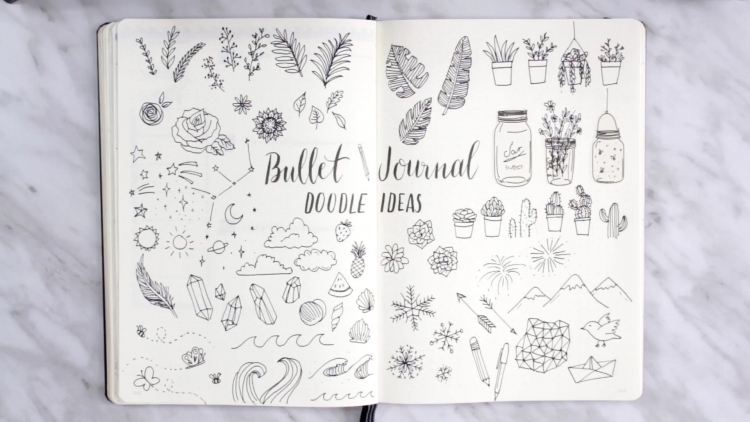 Bullet Journal
DOODLE IDEAS
Jar